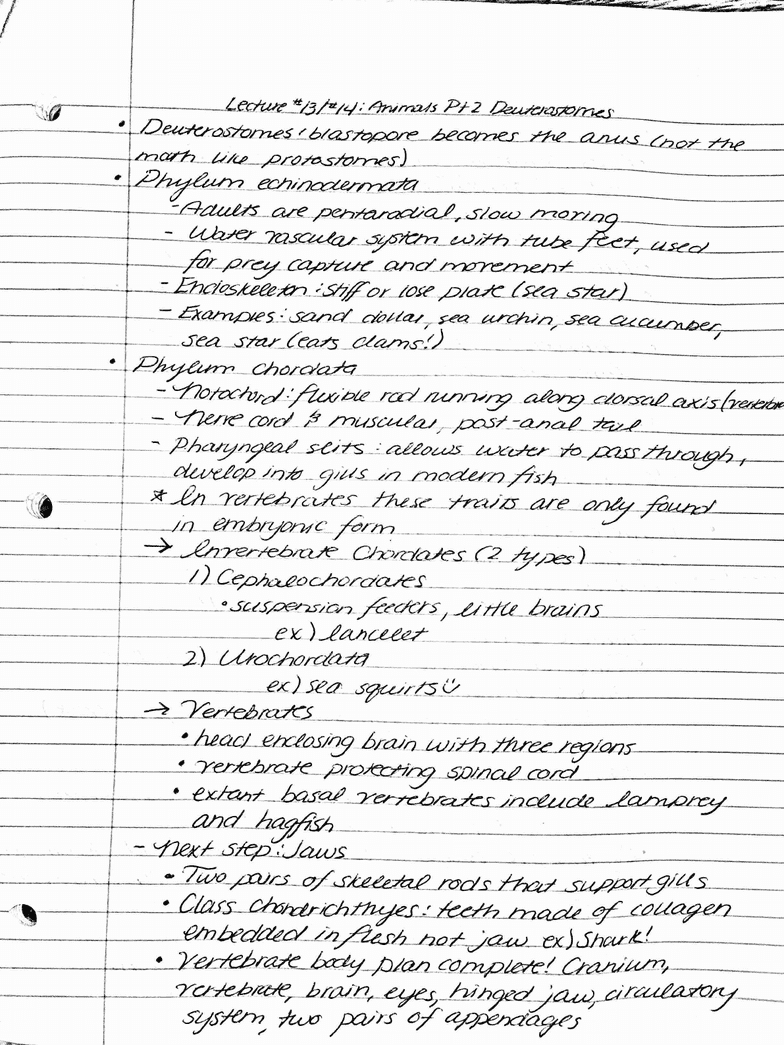 Lecture #13/#14: Animals Pt 2 Deuterostomes
• Deuterostomes: blastopore becomes the anus (not the
moath like protostomes)
• Phylum echinodermata
- Adults are pentaradial, slow moving
- Water vascular system with tube feet, used
for prey capture and movement
- Endoskeleton: stiff or lose plate (sea star)
- Examples: sand dollar, sea urchin, sea cucumber,
sea star (eats clams!)
• Phylum chordata
- Notochord: flexible rod running along dorsal axis (vertebrae
- Nerve cord & muscular, post-anal tail
- Pharyngeal slits: allows water to pass through,
develop into gills in modern fish
* In vertebrates these traits are only found
in embryonic form
→ Invertebrate Chordates (2 types)
1) Cephalochordates
• suspension feeders, little brains
ex) lancelet
2) Urochordata
ex) sea squirts ü
→ Vertebrates
• head enclosing brain with three regions
• vertebrate protecting spinal cord
• extant basal vertebrates include lamprey
and hagfish
- Next step: Jaws
• Two pairs of skeletal rods that support gills
• Class Chondrichthyes: teeth made of collagen
embedded in flesh not jaw ex) Shark!
• Vertebrate body plan complete! Cranium,
vertebrate, brain, eyes, hinged jaw, circulatory
system, two pairs of appendages